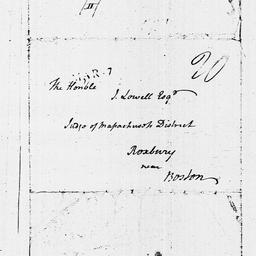 (11)
MAR. 7
20
The Honble
J. Lowell Esqr
Judge of Massachusetts District
Roxbury
near
Boston